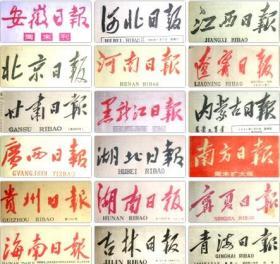 安徽日報
周末刊
河北日報
HEBEI RIBAO
江西日報
JIANGXI RIBAO
北京日報
河南日報
HENAN RIBAO
遼寧日報
LIAONING RIBAO
甘肅日報
GANSU RIBAO
黑龍江日報
内蒙古日報
廣西日報
GVANGJSIH YIZBAU
湖北日報
HUBEI RIBAO
南方日報
周末扩大版
貴州日報
GUIZHOU RIBAO
湖南日報
HUNAN RIBAO
寧夏日報
NINGXIA RIBAO
海南日报
吉林日報
JILIN RIBAO
青海日報
QINGHAI RIBAO